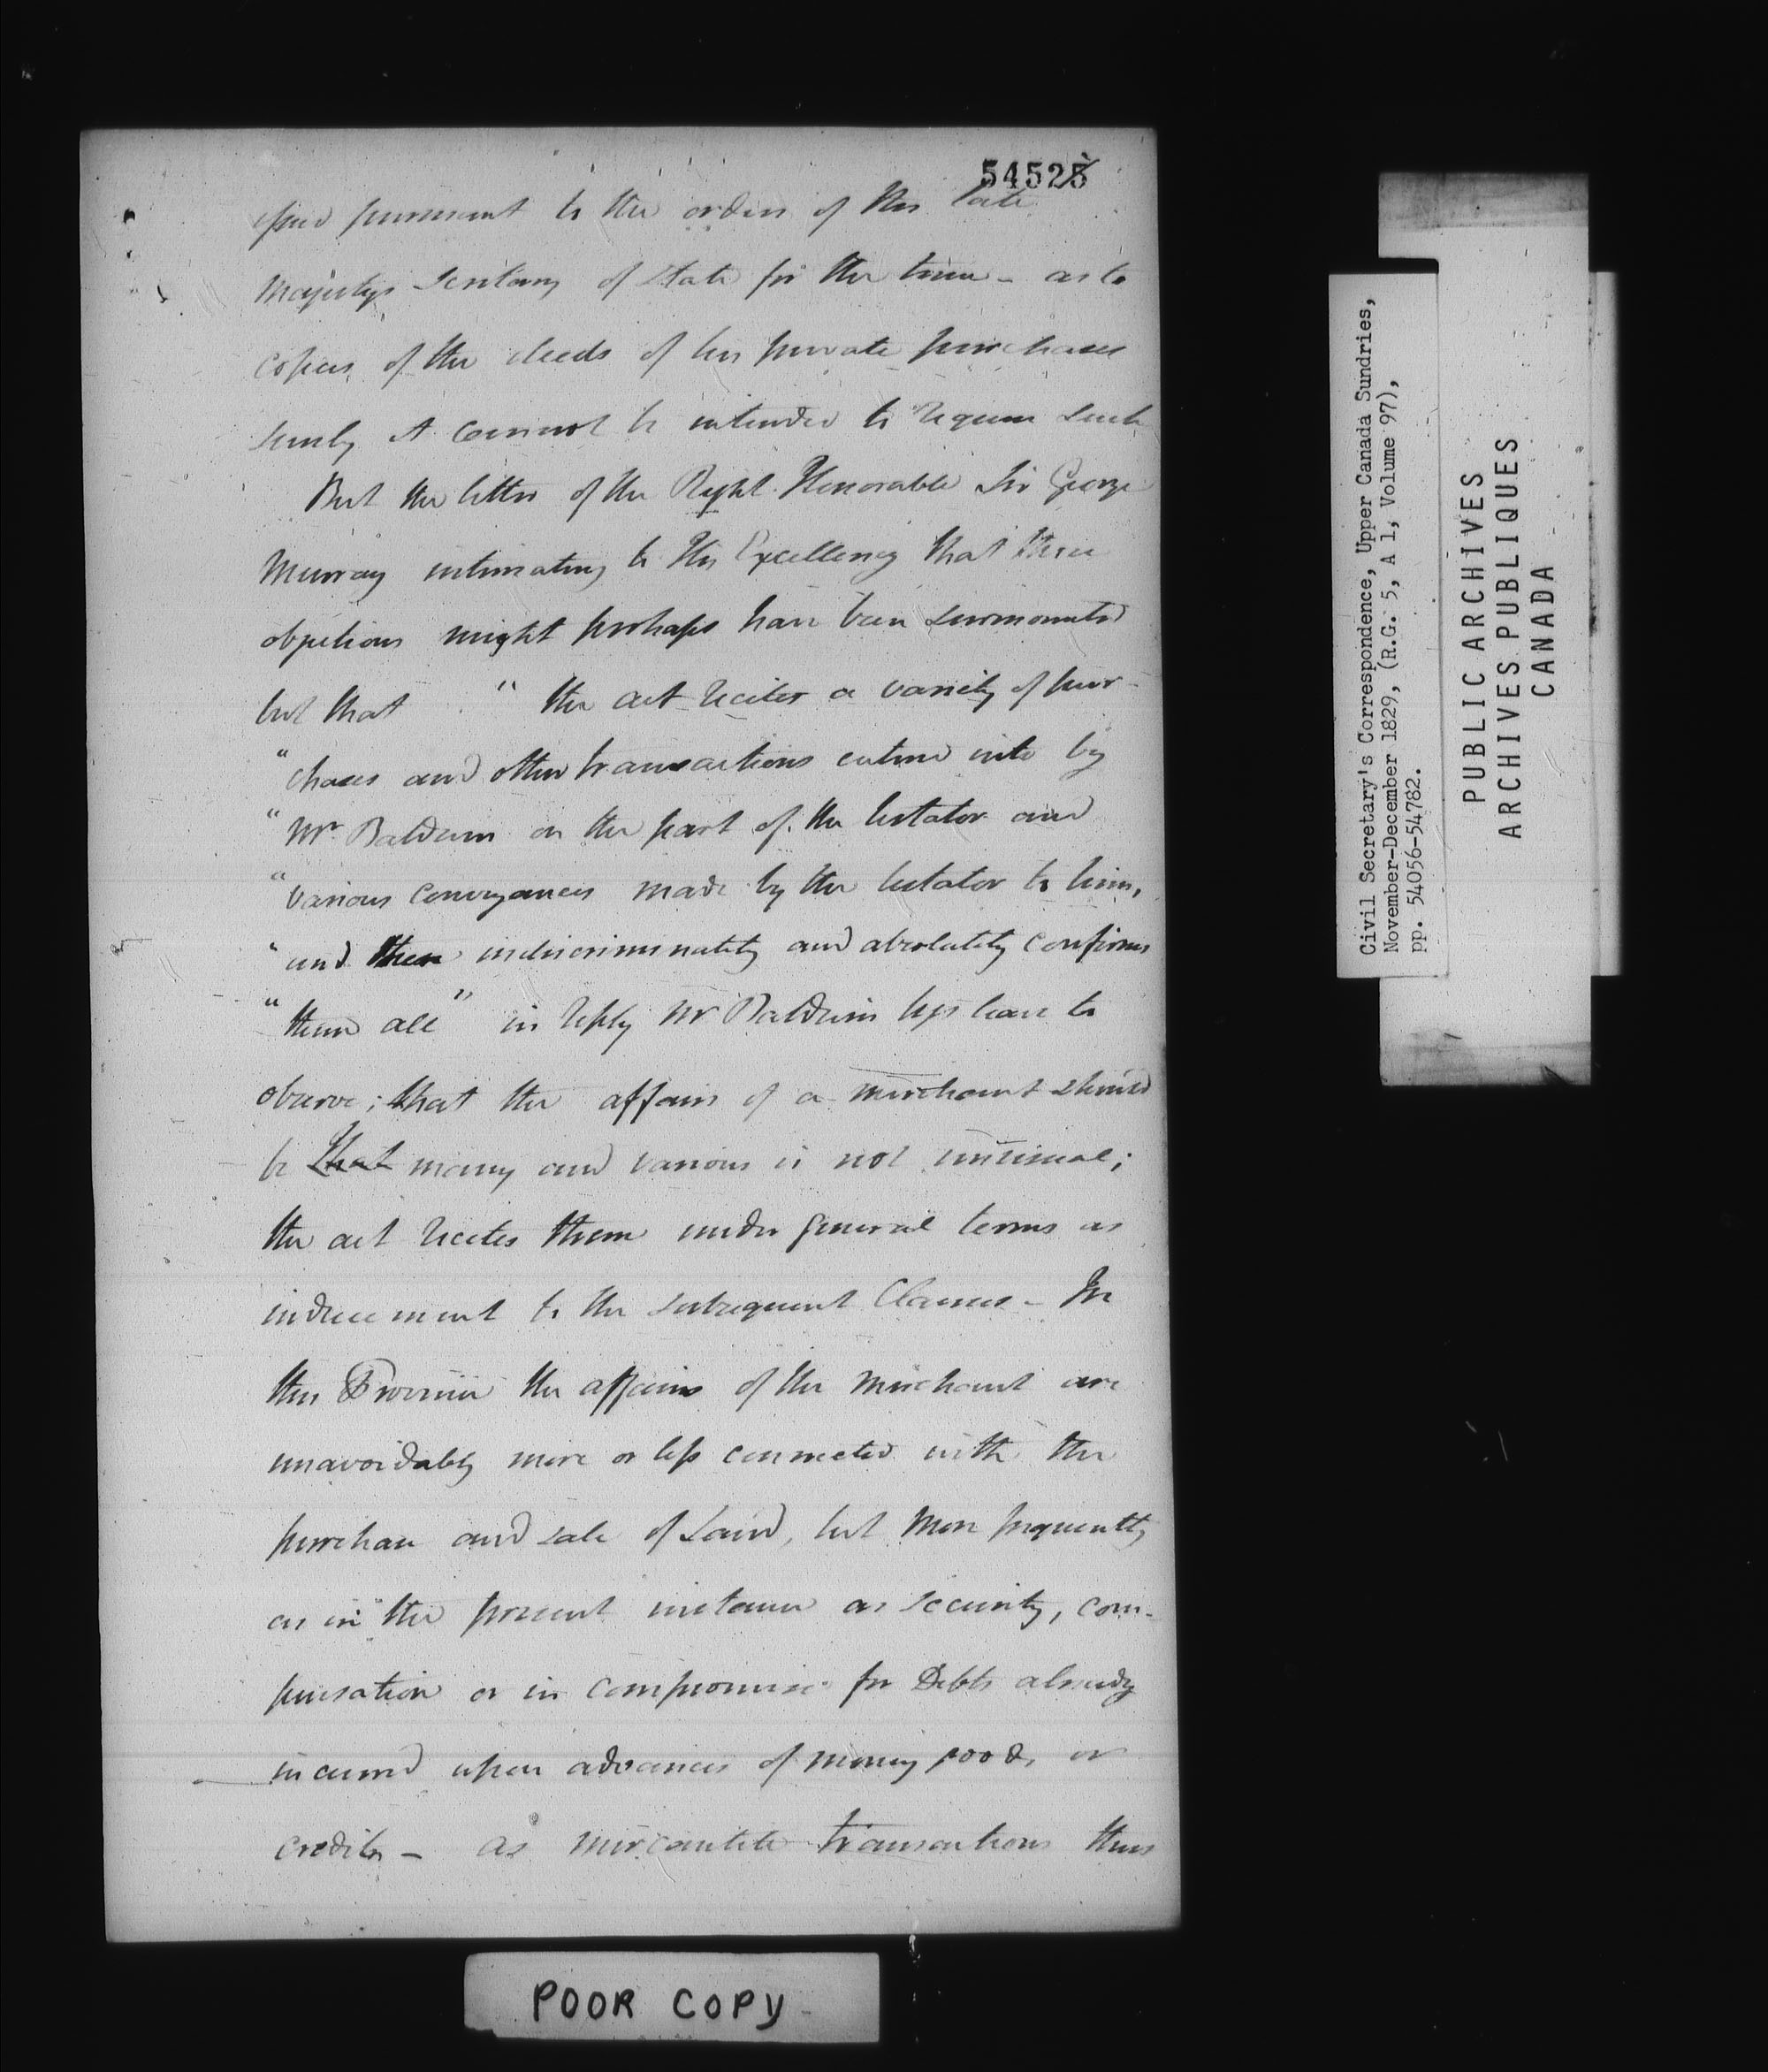 54525
issued pursuant to the orders of His late
Majestys Secretary of State for the time - as to
copies of the deeds of his private purchases
surely it cannot be intended to require such
But the letter of the Right Honorable Sir George
Murray intimating to His Excellency that these
objections might perhaps have been surmounted
but that " the act recites a variety of pur-
"chases and other transactions entered into by
"Mr Baldwin on the part of the testator and
"various conveyances made by the testator to him,
"and then indiscriminately and absolutely confirms
"them all" in reply Mr Baldwin begs leave to
observe; that the affairs of a merchant should
be that many and various is not unusual;
the act recites them under general terms as
inducement to the subsequent Clauses - In
this Province the affairs of the Merchant are
unavoidably more or less connected with the
purchase and sale of Land, but more frequently
as in the present instance as security, com-
pensation or in compromise for Debts already
incurred upon advances of money goods, or
credits - as mercantile transactions thus
POOR COPY
Civil Secretary's Correspondence, Upper Canada Sundries,
November-December 1829, (R.G. 5, A 1, Volume 97),
pp. 54056-54782.
PUBLIC ARCHIVES
ARCHIVES PUBLIQUES
CANADA